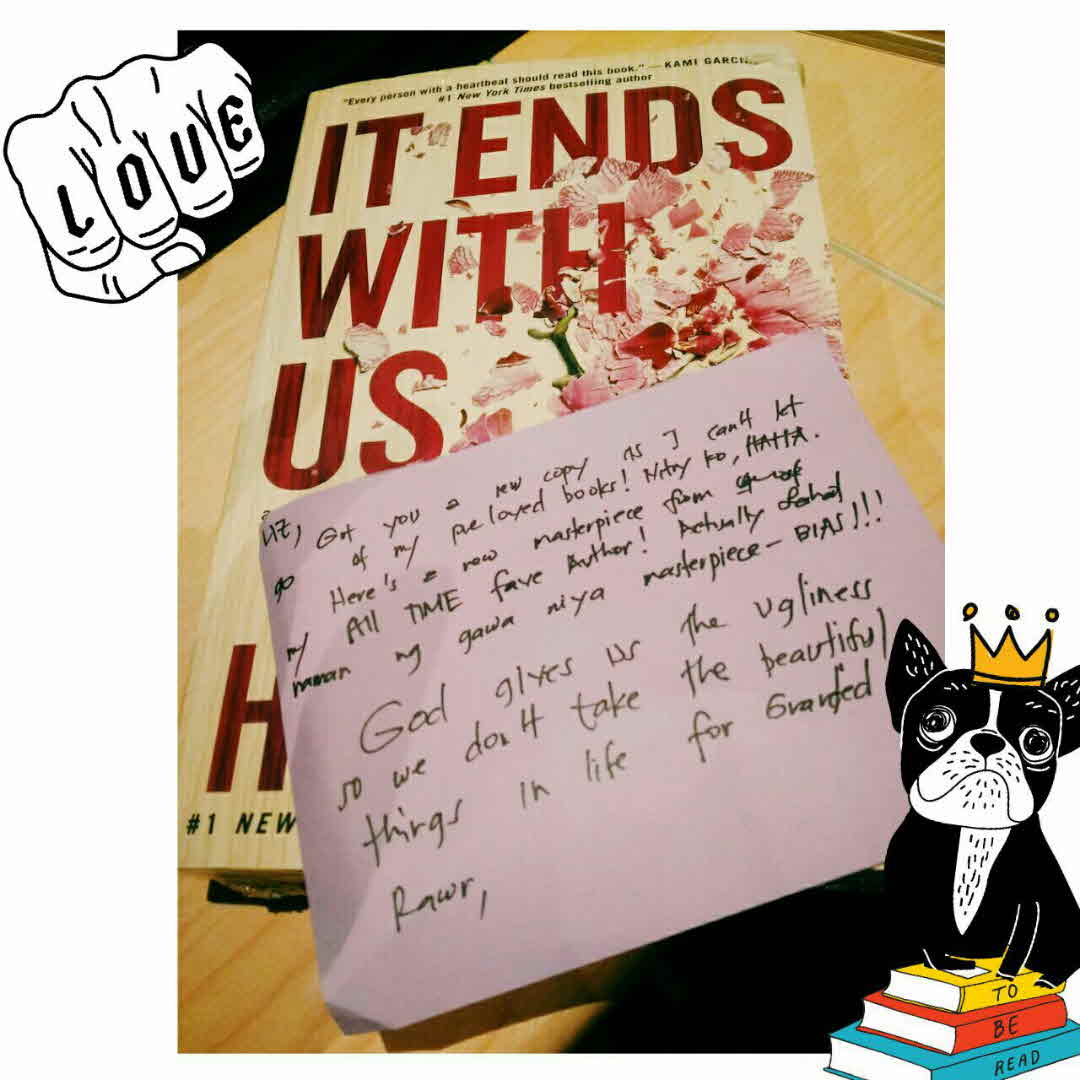 LOVE
"Every person with a heartbeat should read this book." — KAMI GARCI
#1 New York Times bestselling author
IT ENDS
WITH
US
H
#1 NEW
LIZ, Got you a new copy as I can't let
go of my preloved books! Nitry ko, HAHA.
Here's a new masterpiece from
my All TIME fave Author! Actually Lahat
naman ng gawa niya masterpiece - BIAS!!!
God gives us the ugliness
so we don't take the beautiful
things in life for Granted
Rawr,
TO
BE
READ